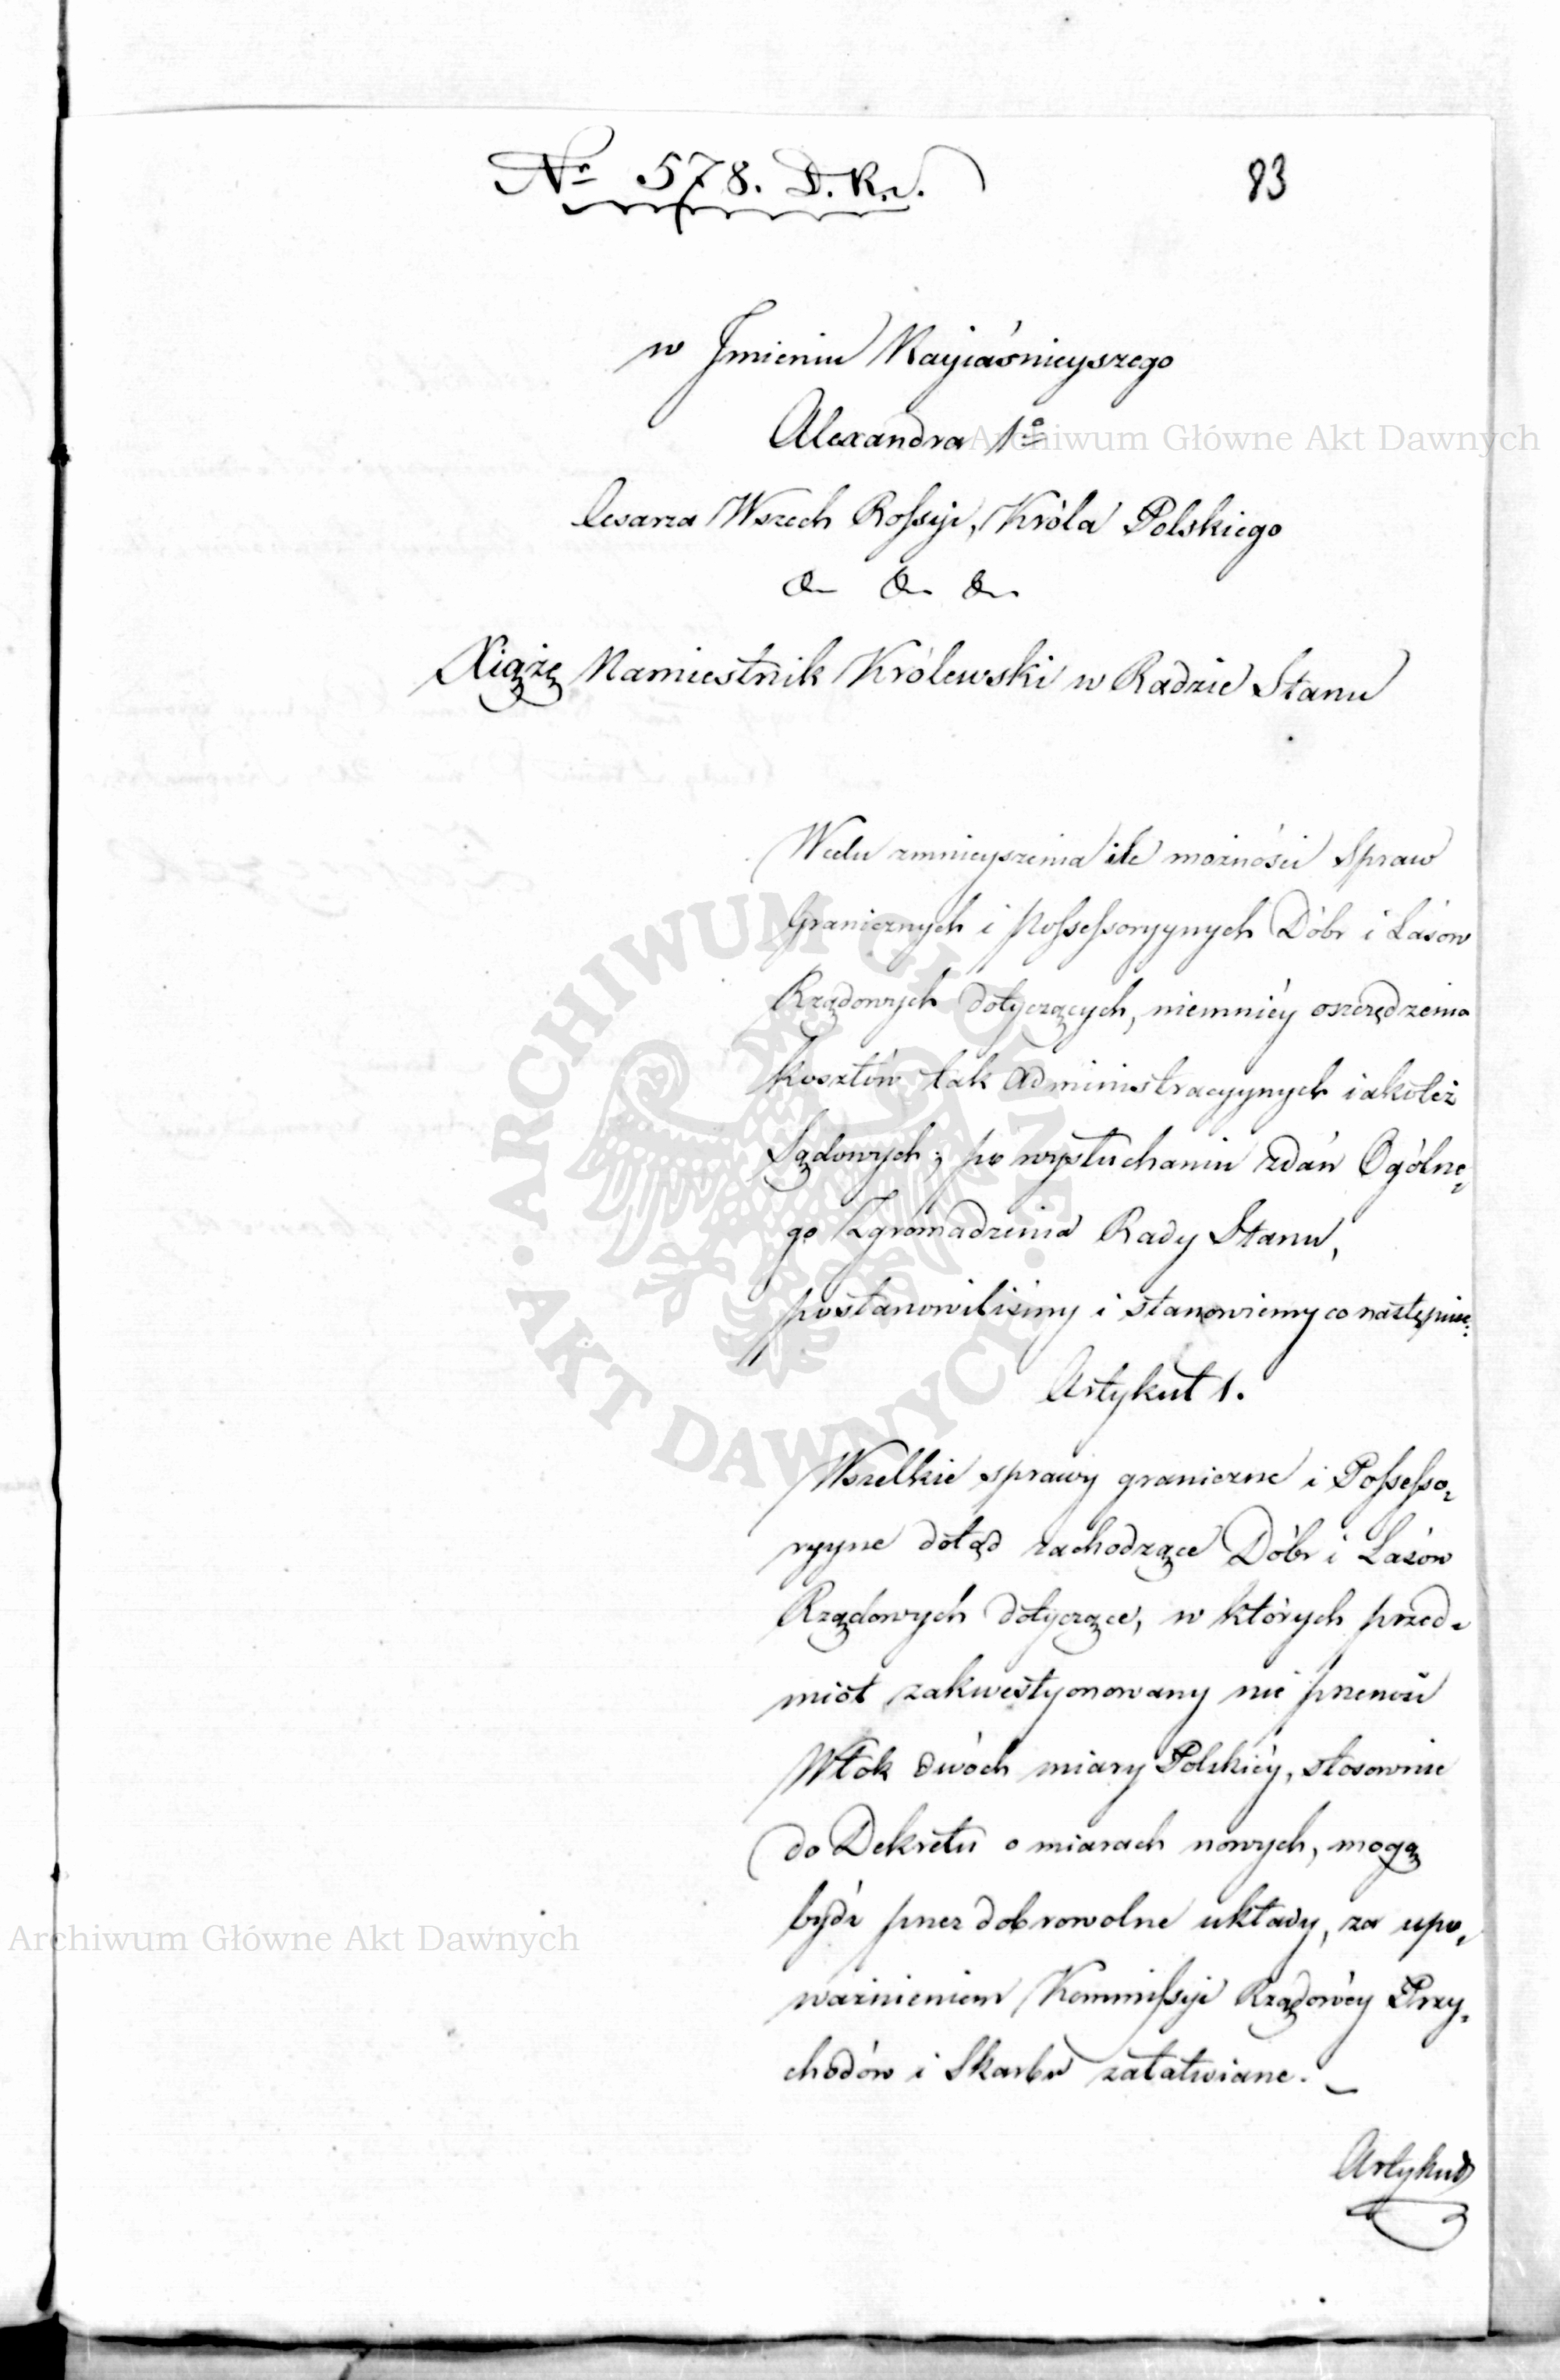 Nr 578. D. K.
83
w Jmieniu Nayiaśnieyszego
Alexandra 1o
Archiwum Główne Akt Dawnych
Cesarza Wszech Rossyi, Króla Polskiego
& & &
Xiążę Namiestnik Królewski w Radzie Stanu
W celu zmnieyszenia ile możności Spraw
Granicznych i Possessoryynych Dóbr i Lasów
Rządowych dotyczących, niemniéy oszczędzenia
kosztów tak Administracyynych iakoteż
Sądowych; po wysłuchaniu zdań Ogólne-
go Zgromadzenia Rady Stanu,
postanowiliśmy i stanowiemy co następuie:
Artykuł 1.
Wszelkie sprawy graniczne i Possesso-
ryyne dotąd zachodzące Dóbr i Lasów
Rządowych dotyczące, w których przed-
miot zakwestyonowany nie przenosi
Włók dwóch miary Polskiéy, stosownie
do Dekretu o miarach nowych, mogą
bydź przez dobrowolne układy, za upo-
Archiwum Główne Akt Dawnych
ważnieniem Kommissyi Rządowéy Przy-
chodów i Skarbu załatwiane.
Artykuł
ARCHIWUM GŁÓWNE • AKT DAWNYCH •